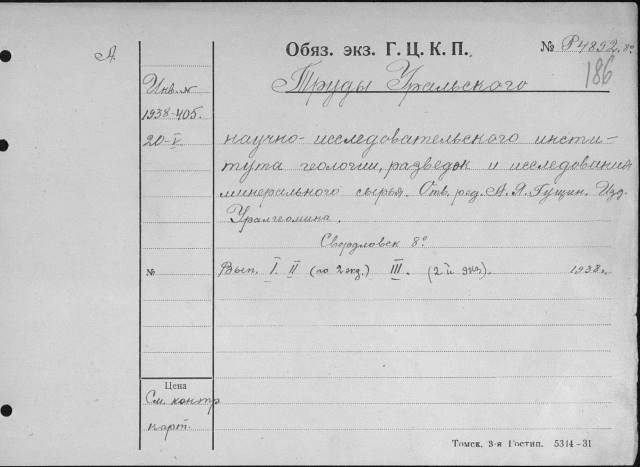 А
Обяз. экз. Г. Ц. К. П.
№ Р4892. 8º
186
Труды Уральского
Инв. №
1938-405.
20-V
научно-исследовательского инсти-
тута геологии, разведок и исследования
минерального сырья. Отв. ред. А. Я. Гущин. Изд.
Уралгеомина.
Свердловск 8º
№
Вып. I. II (по 2 экз.) III. (2 й экз). 1938г.
Цена
См. контр
карт.
Томск, 3-я Гостип. 5314-31